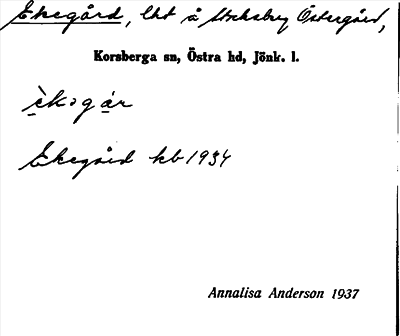 Ekegård, lht å Stocksbey Östergård,
Korsberga sn, Östra hd, Jönk. l.
èkəgár
Ekegård kb 1934
Annalisa Anderson 1937